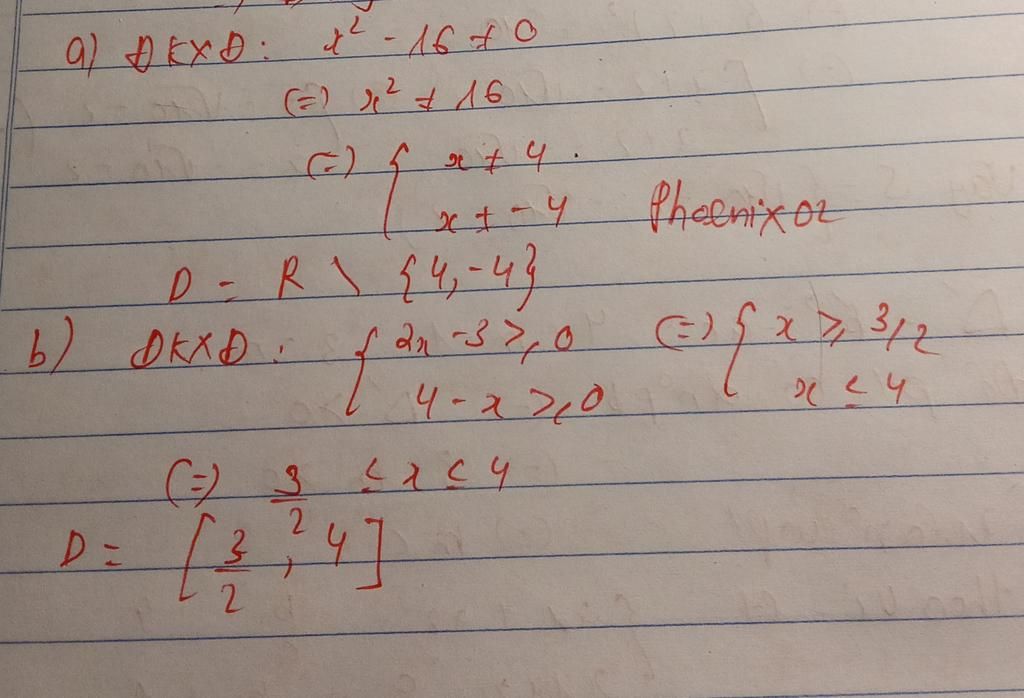 a) ĐKXĐ: x² - 16 ≠ 0
(=) x² ≠ 16
(=) { x ≠ 4.
x ≠ -4
Phoenix02
D = R \ {4, -4}
b) ĐKXĐ: { 2x - 3 ⩾ 0 (=) { x ⩾ 3/2
4 - x ⩾ 0 x ≤ 4
(=) 3/2 ≤ x ≤ 4
D = [3/2 ; 4]